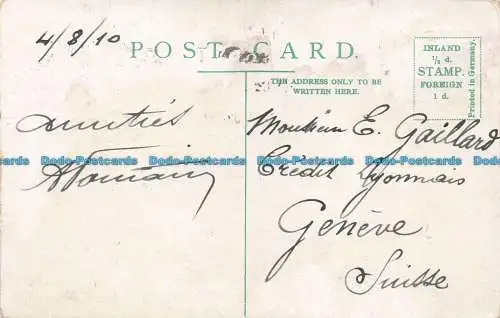 4/8/10
POST CARD.
THE ADDRESS ONLY TO BE
WRITTEN HERE.
INLAND
½ d.
STAMP.
FOREIGN
1 d.
Printed in Germany.
amitiés
Monsieur E. Gaillard
Crédit Lyonnais
Genève
Suisse
Dodo-Postcards Dodo-Postcards Dodo-Postcards Dodo-Postcards Dodo-Postcards Dodo-Postcards